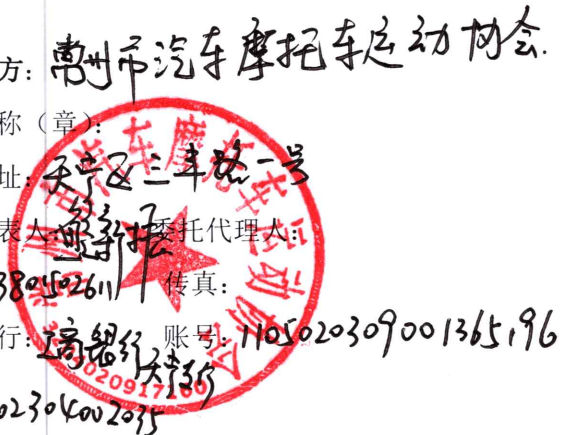 方：常州市汽车摩托车运动协会.
称（章）：
址：天宁区三丰路一号
表人： 委托代理人：
3801502611 传真：
行：工商银行天宁支行 账号：1105020309001365196
02304002035
常州市汽车摩托车运动协会